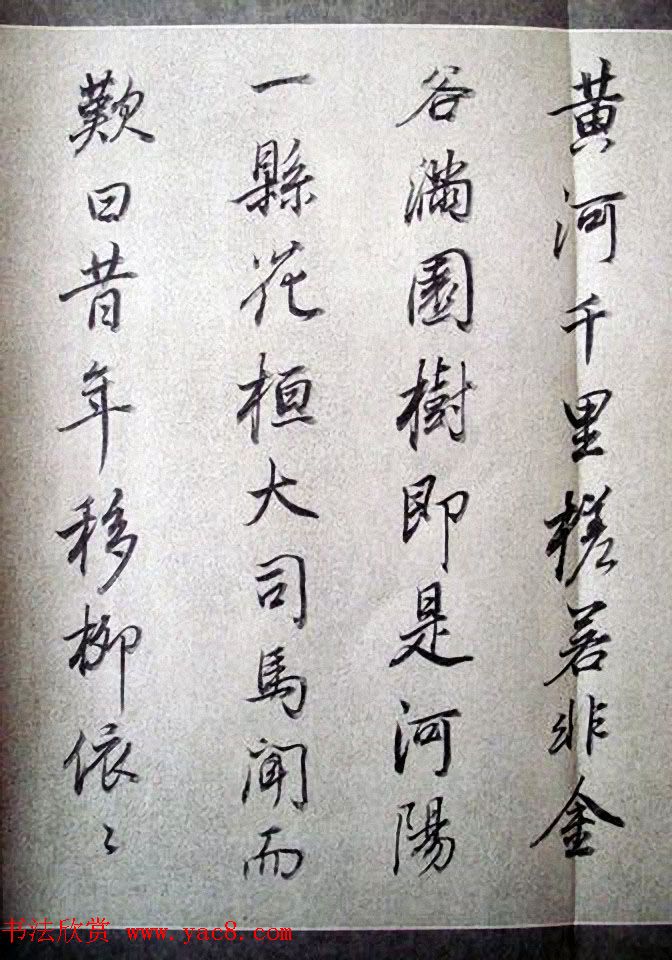 黃河千里槎若非金
谷滿園樹即是河陽
一縣花桓大司馬聞而
歎曰昔年移柳依〻
书法欣赏 www.yac8.com